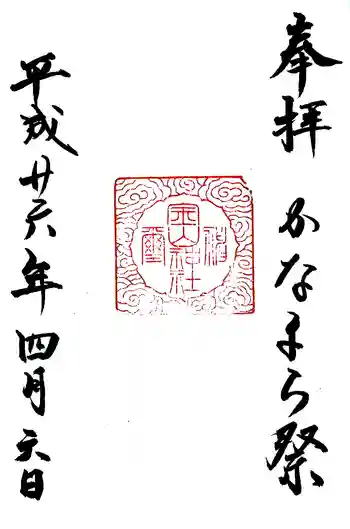 奉拝 かなまら祭
金山神社
平成廿六年四月六日